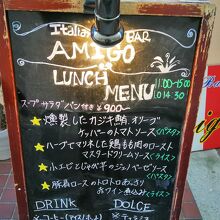 Italian BAR
AMIGO
LUNCH
MENU 11:00-15:00
LO 14:30
スープ サラダ パン付き ¥900
★燻製したカジキ鮪 オリーブ
ケッパーのトマトソース (パスタ)
★ハーブでマリネした鶏もも肉のロースト
マスタードクリームソース (ライス)
★小エビとじゃが芋のジェノベーゼソース
(パスタ)
★豚肩ロースのトロトロ
(ライス)
DRINK DOLCE
コーヒー (アイス/ホット)